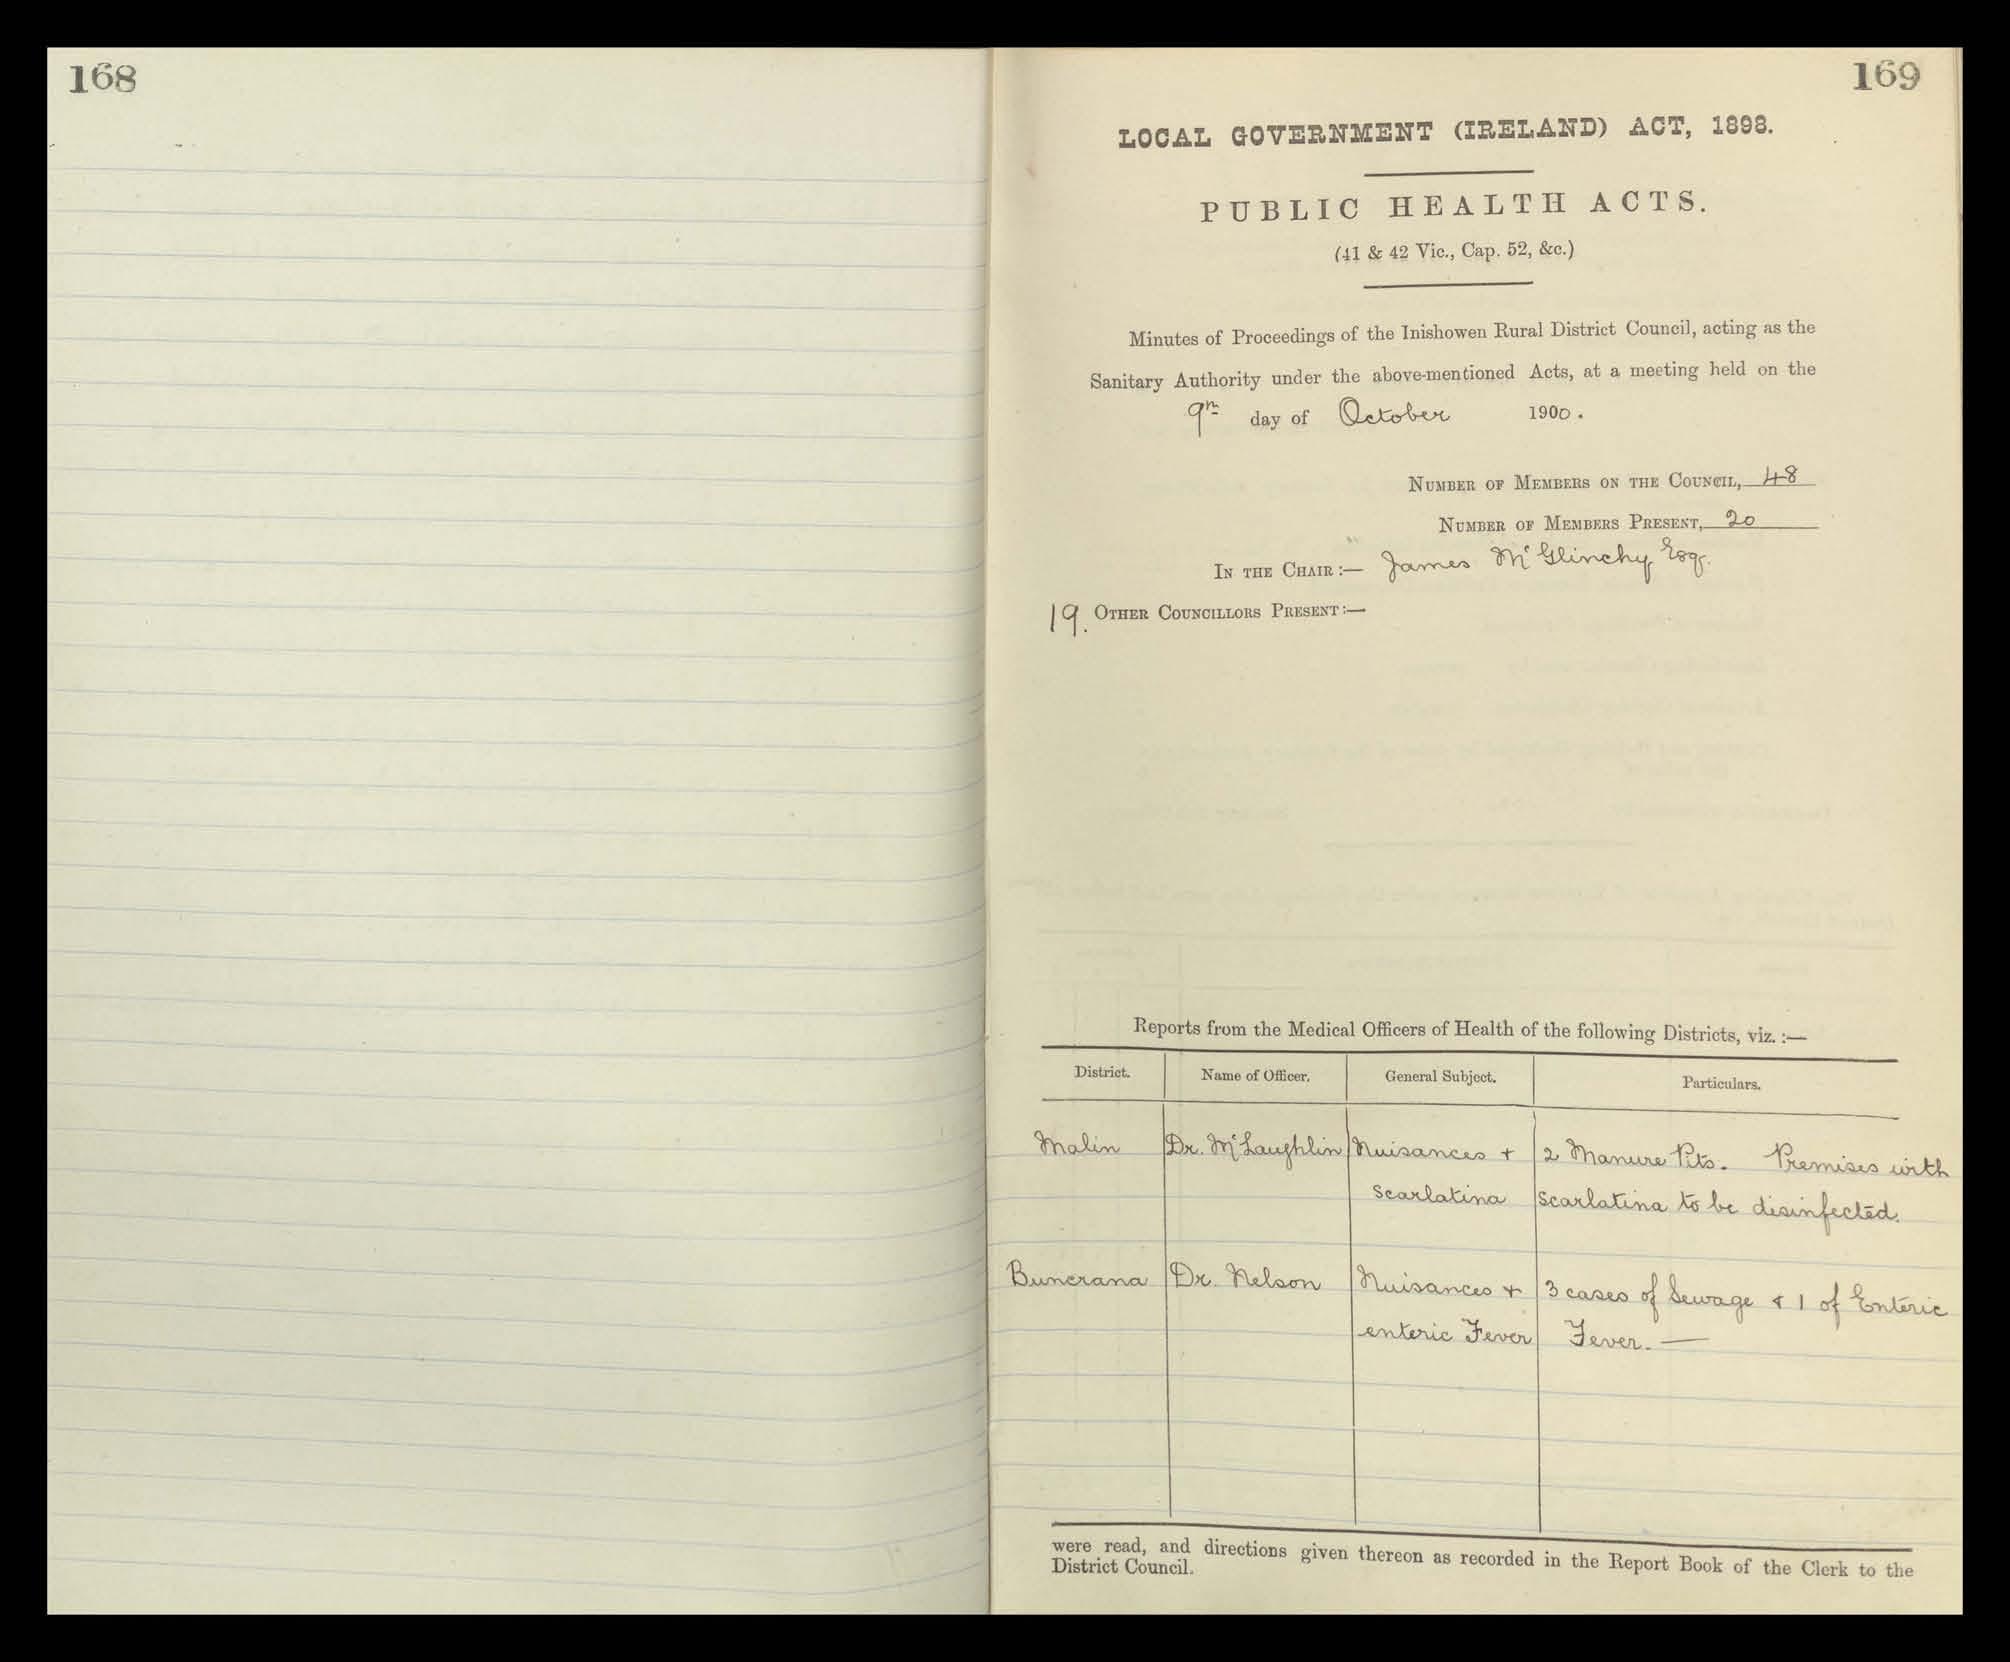 168
169
LOCAL GOVERNMENT (IRELAND) ACT, 1898.
PUBLIC HEALTH ACTS.
(41 & 42 Vic., Cap. 52, &c.)
Minutes of Proceedings of the Inishowen Rural District Council, acting as the
Sanitary Authority under the above-mentioned Acts, at a meeting held on the
9th day of October 1900.
NUMBER OF MEMBERS ON THE COUNCIL, 48
NUMBER OF MEMBERS PRESENT, 20
IN THE CHAIR :— James McGlinchy Esq.
19. OTHER COUNCILLORS PRESENT :—
Reports from the Medical Officers of Health of the following Districts, viz. :—
District. Name of Officer. General Subject. Particulars.
Malin Dr. McLaughlin Nuisances + 2 Manure Pits. Premises with
Scarlatina Scarlatina to be disinfected.
Buncrana Dr. Nelson Nuisances + 3 cases of Sewage & 1 of Enteric
enteric Fever Fever. —
were read, and directions given thereon as recorded in the Report Book of the Clerk to the
District Council.